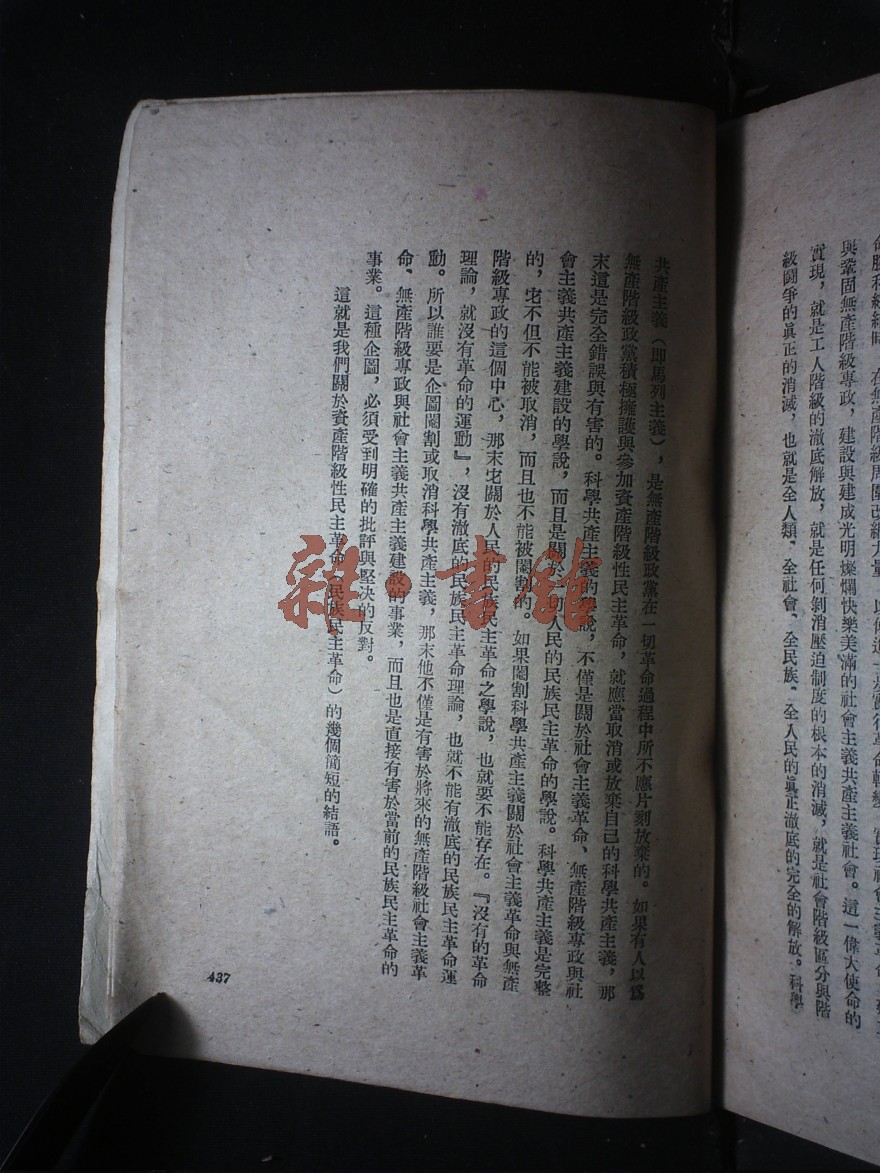 與鞏固無產階級專政，建設與建成光明燦爛快樂美滿的社會主義共產主義社會。這一偉大使命的
實現，就是工人階級的澈底解放，就是任何剝消壓迫制度的根本的消滅，就是社會階級區分與階
級鬪爭的眞正的消滅，也就是全人類、全社會、全民族、全人民的眞正澈底的完全的解放。科學
共產主義（即馬列主義），是無產階級政黨在一切革命過程中所不應片刻放棄的。如果有人以爲
無產階級政黨積極擁護與參加資產階級性民主革命，就應當取消或放棄自己的科學共產主義，那
末這是完全錯誤與有害的。科學共產主義的學說，不僅是關於社會主義革命、無產階級專政與社
會主義共產主義建設的學說，而且是關於人民的民族民主革命的學說。科學共產主義是完整
的，宅不但不能被取消，而且也不能被閹割的。如果閹割科學共產主義關於社會主義革命與無產
階級專政的這個中心，那末宅關於人民的民族民主革命之學說，也就要不能存在。『沒有的革命
理論，就沒有革命的運動』，沒有澈底的民族民主革命理論，也就不能有澈底的民族民主革命運
動。所以誰要是企圖閹割或取消科學共產主義，那末他不僅是有害於將來的無產階級社會主義革
命、無產階級專政與社會主義共產主義建設的事業，而且也是直接有害於當前的民族民主革命的
事業。這種企圖，必須受到明確的批評與堅決的反對。
這就是我們關於資產階級性民主革命（民族民主革命）的幾個簡短的結語。
437
雜·書館